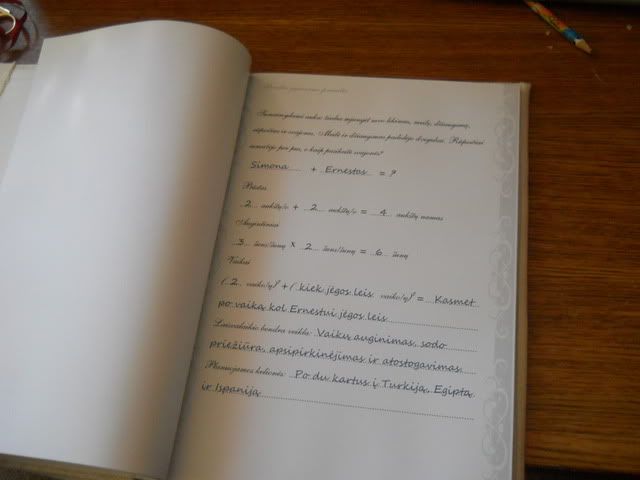 Sumaišydami aukso žiedus sujungėt savo likimus, meilę, džiaugsmą,
rūpesčius ir svajones. Meilė ir džiaugsmas padidėjo dvigubai. Rūpesčiai
sumažėjo per pus, o kaip pasikeitė svajonės?
Simona + Ernestas = ?
Būstas
2 aukštų/o + 2 aukštų/o = 4 aukštų namas
Augintiniai
3 šuns/šunų x 2 šuns/šunų = 6 šunų
Vaikai
( 2 vaiko/ų)² + ( kiek jėgos leis vaiko/ų)² = Kasmet
po vaiką kol Ernestui jėgos leis
Laisvalaikio bendra veikla: Vaikų auginimas, sodo
priežiūra, apsipirkinėjimas ir atostogavimas
Planuojamos kelionės: Po du kartus į Turkiją, Egiptą
ir Ispaniją